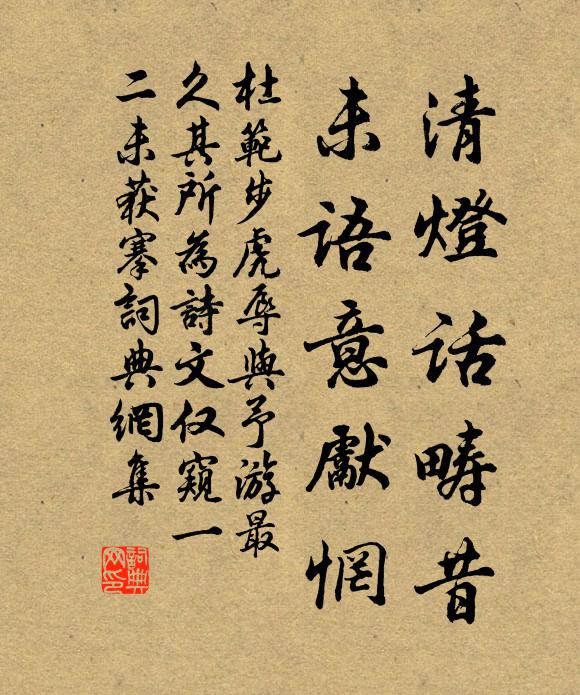 清燈話疇昔
未語意獻惘
杜範步虎辱與予游最
久其所為詩文仅窺一
二未获搴詞典網集
詞典網印